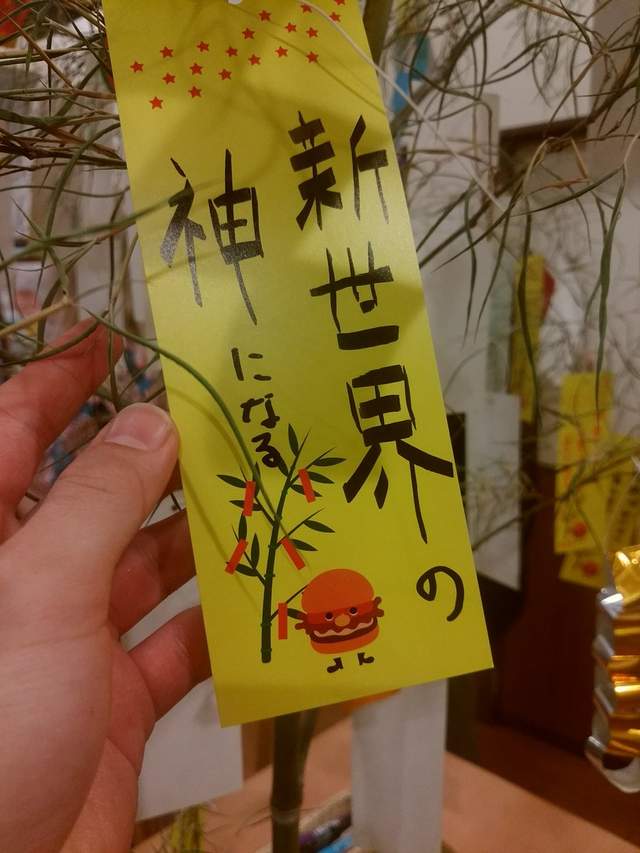 新世界の
神になる